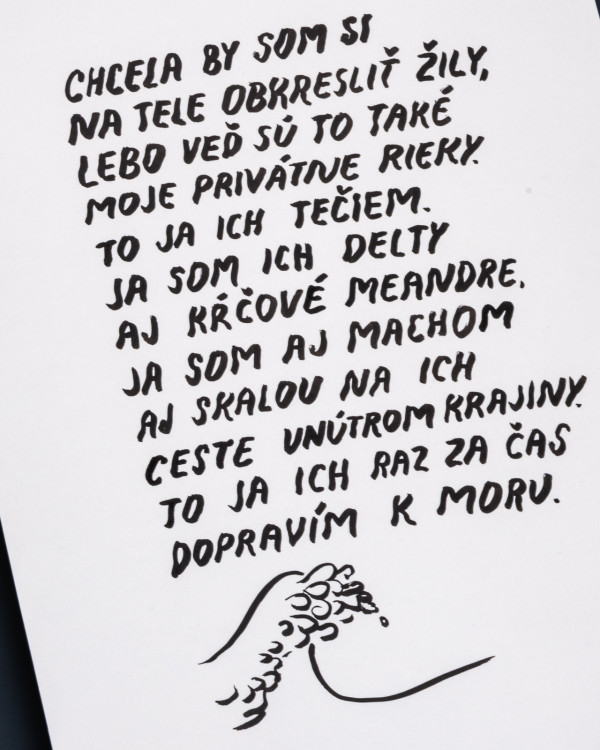 CHCELA BY SOM SI
NA TELE OBKRESLIŤ ŽILY,
LEBO VEĎ SÚ TO TAKÉ
MOJE PRIVÁTNE RIEKY.
TO JA ICH TEČIEM.
JA SOM ICH DELTY
AJ KŔČOVÉ MEANDRE.
JA SOM AJ MACHOM
AJ SKALOU NA ICH
CESTE VNÚTROM KRAJINY.
TO JA ICH RAZ ZA ČAS
DOPRAVÍM K MORU.